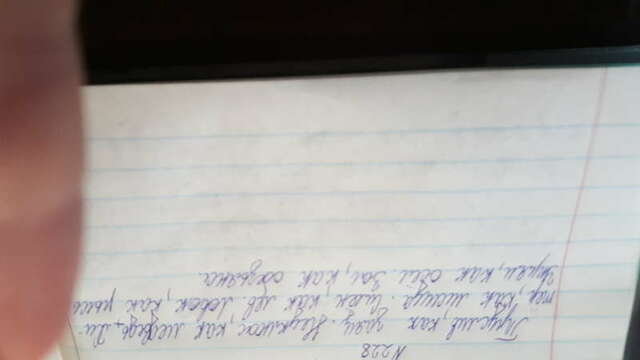 N228
Труслив, как заяц. Неуклюж, как медведь. Хи-
тер, как лисица. Силён, как лев. Ловок, как рысь.
Упрям, как осёл. Зол, как собака.